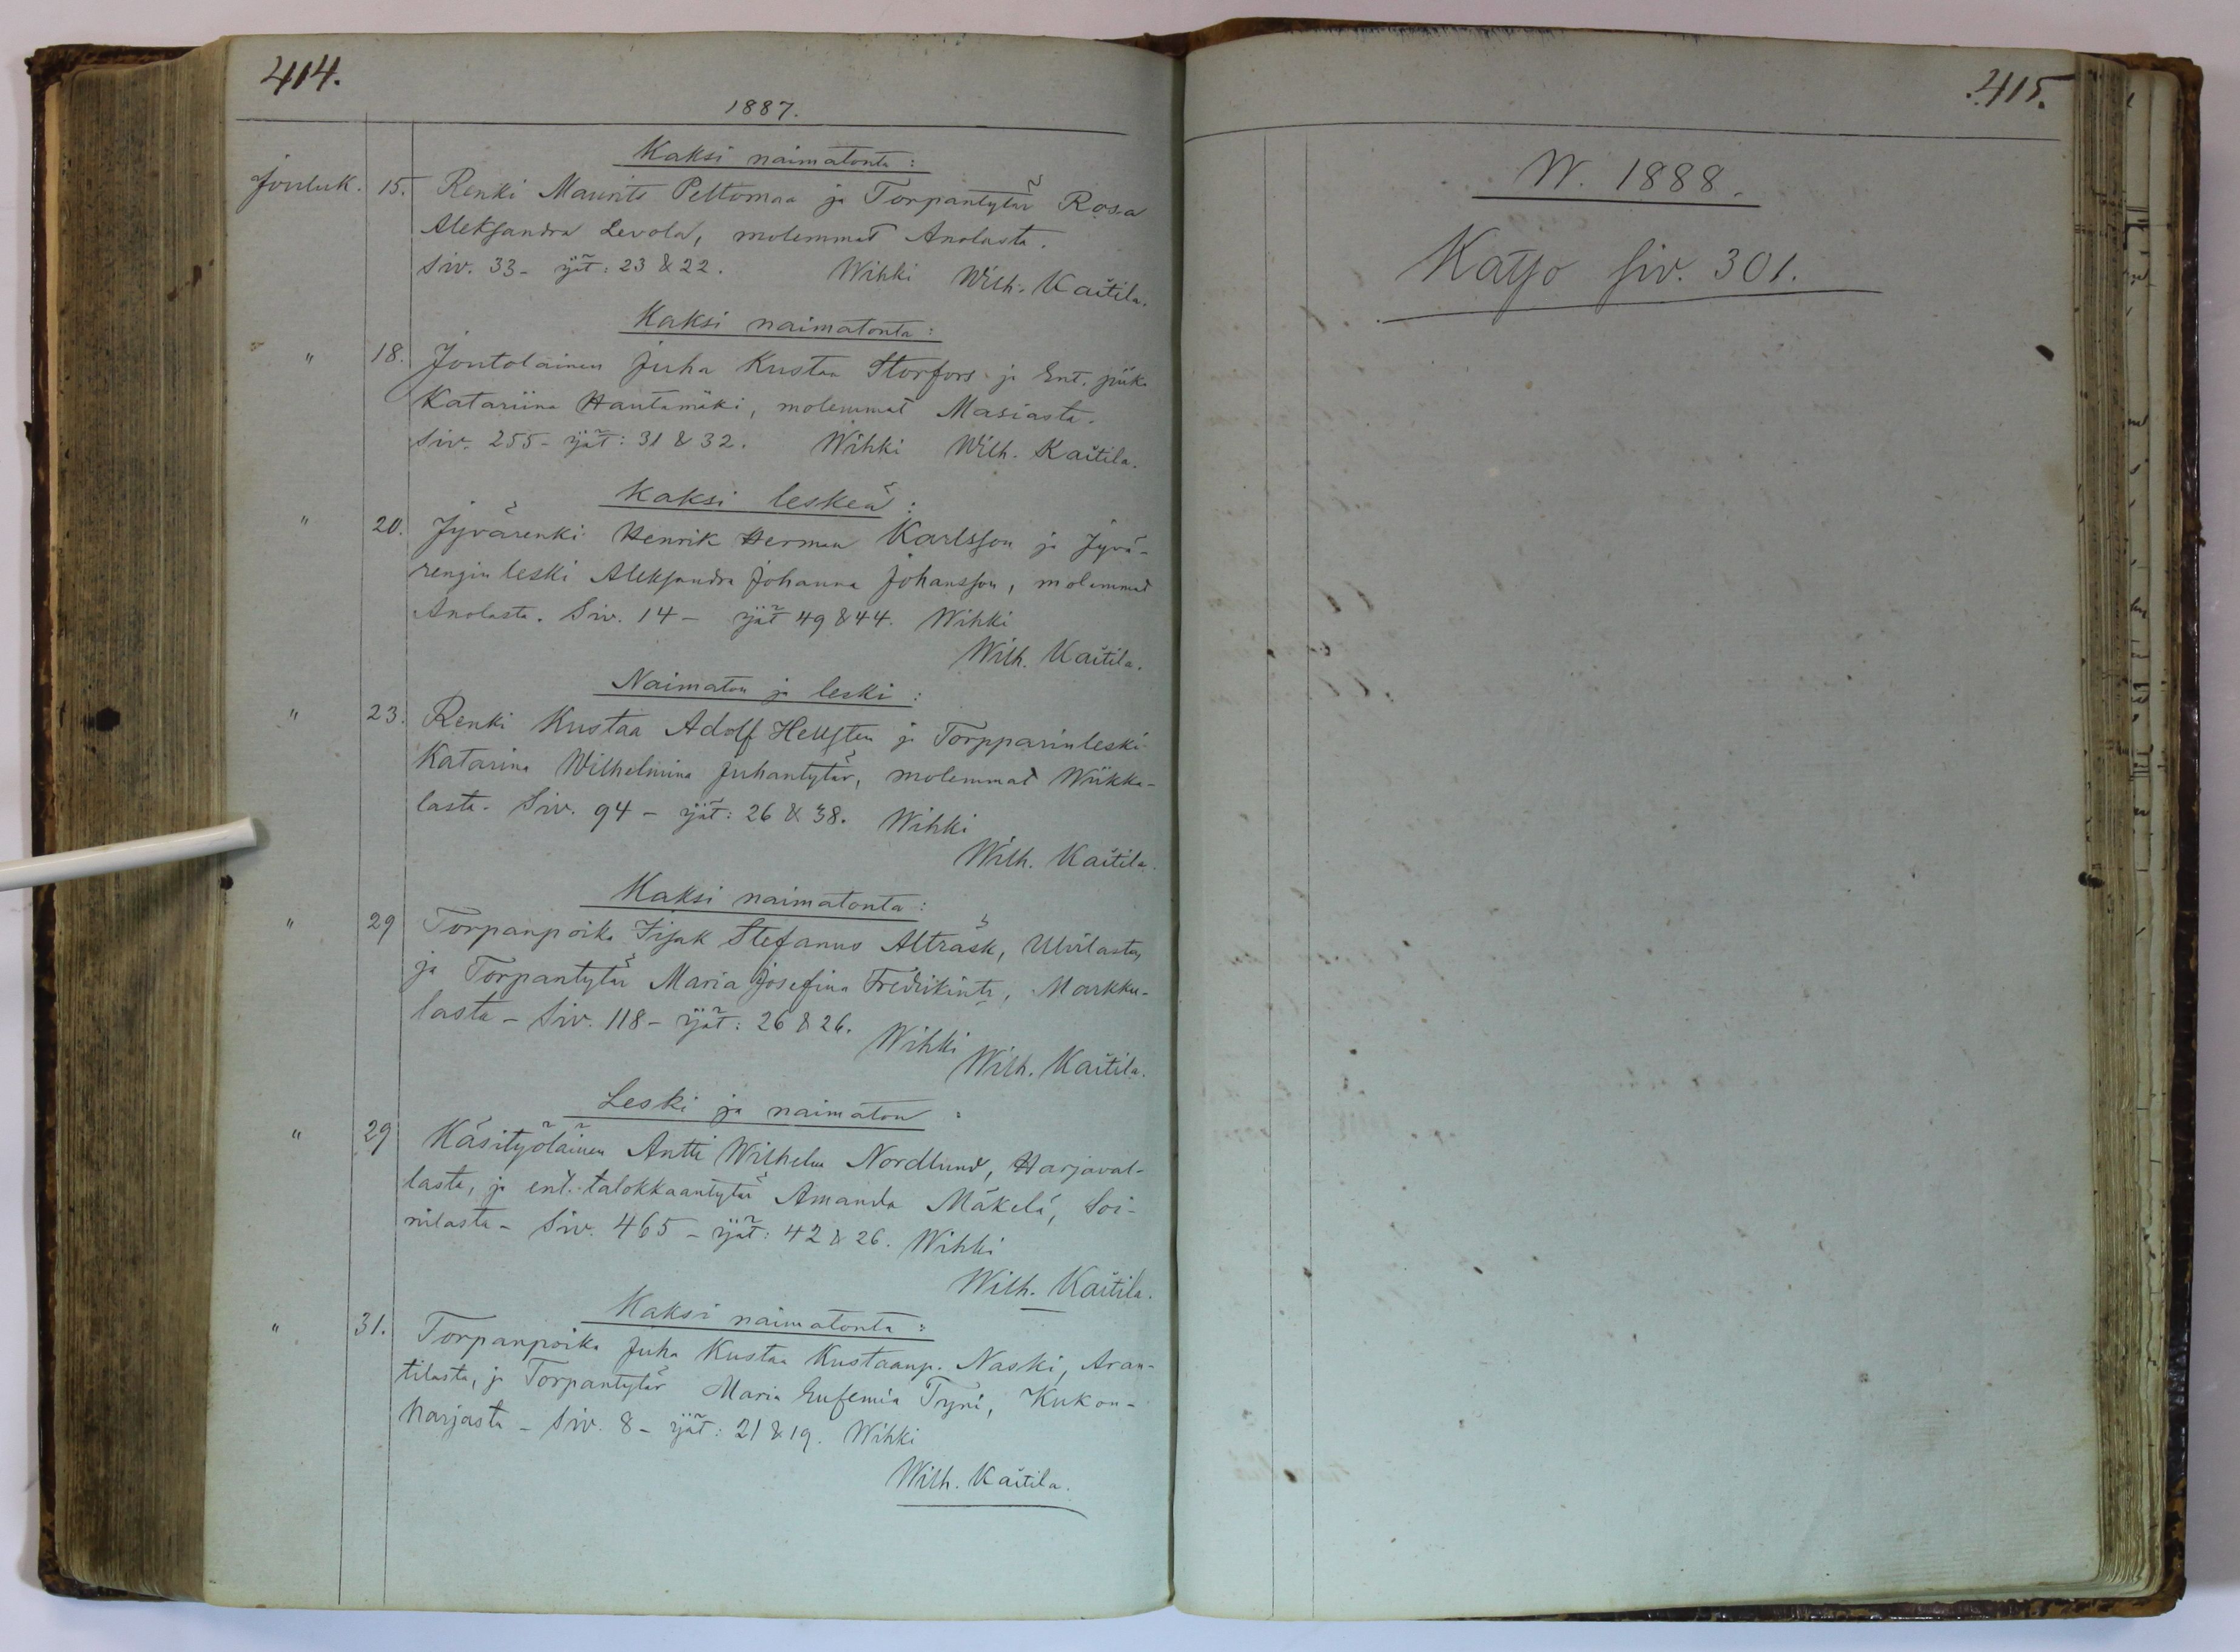 414.
1887.
Kaksi naimatonta:
Jouluk. 15. Renki Maurits Peltomaa ja Torpantytär Rosa
Aleksandra Levola, molemmat Anolasta.
Siv. 33 - ijät: 23 & 22. Wihki Wilh. Kaitila.
Kaksi naimatonta:
" 18. Joutolainen Juha Kustaa Storfors ja Ent. piika
Katariina Hautamäki, molemmat Masiasta.
Siv. 255 - ijät: 31 & 32. Wihki Wilh. Kaitila.
Kaksi leskeä:
" 20. Jyvärenki Henrik Herman Karlsson ja Jyvä-
rengin leski Aleksandra Johanna Johansson, molemmat
Anolasta. Siv. 14 - ijät 49 & 44. Wihki
Wilh. Kaitila.
Naimaton ja leski:
" 23. Renki Kustaa Adolf Hellsten ja Torpparinleski
Katarina Wilhelmina Juhantytär, molemmat Wiikka-
lasta. Siv. 94 - ijät: 26 & 38. Wihki
Wilh. Kaitila.
Kaksi naimatonta:
" 29 Torpanpoika Iisak Stefanus Alträsk, Ulvilasta,
ja Torpantytär Maria Josefina Fredrikint., Markku-
lasta - Siv. 118 - ijät: 26 & 26.
Wihki Wilh. Kaitila.
Leski ja naimaton:
" 29 Käsityöläinen Antti Wilhelm Nordlund, Harjaval-
lasta, ja ent. talokkaantytär Amanda Mäkelä, Soi-
nilasta - Siv. 465 - ijät: 42 & 26. Wihki
Wilh. Kaitila.
Kaksi naimatonta:
" 31. Torpanpoika Juha Kustaa Kustaanp. Naski, Aran-
tilasta, ja Torpantytär Maria Eufemia Tryni, Kukon-
harjasta - Siv. 8 - ijät: 21 & 19. Wihki
Wilh. Kaitila.
415.
W. 1888.
Katso siv. 301.